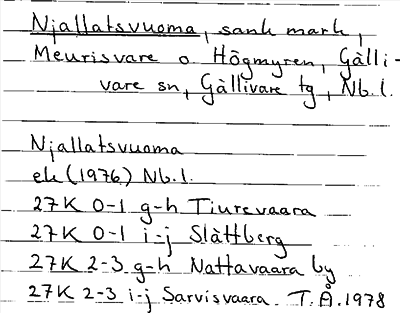 Njallatsvuoma, sank mark,
Meurisvare o. Högmyren, Gälli-
vare sn, Gällivare tg, Nb.l.
Njallatsvuoma
ek (1976) Nb.l.
27K 0-1 g-h Tiurevaara
27K 0-1 i-j Slättberg
27K 2-3 g-h Nattavaara by
27K 2-3 i-j Sarvisvaara. T.Å.1978